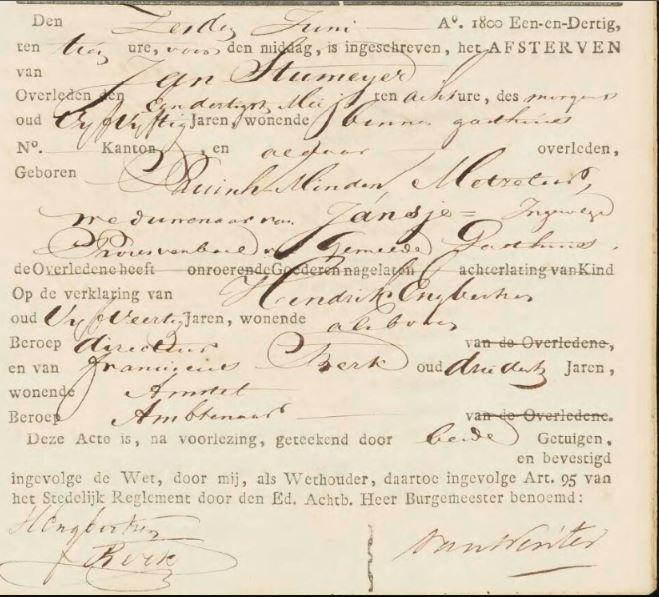 Den Zesden Juni A°. 1800 Een-en-Dertig,
ten tien ure, voor den middag, is ingeschreven, het AFSTERVEN
van Jan Stumeyer
Overleden den Eenendertigst Mei ten acht ure, des morgens
oud Vyf Vyftig Jaren, wonende binnen gasthuis
N°. Kanton , en aldaar overleden,
Geboren Minden, Metselaar,
weduwenaar van Jansje
Gemeede Gasthuis.
de Overledene heeft onroerende Goederen nagelaten achterlating van Kind
Op de verklaring van Hendrik Engberker
oud Vyf Veertig Jaren, wonende als boven
Beroep directeur van de Overledene,
en van Franciscus Berk oud drie dertig Jaren,
wonende Amstel
Beroep Ambtenaar van de Overledene.
Deze Acte is, na voorlezing, geteekend door beide Getuigen,
en bevestigd
ingevolge de Wet, door mij, als Wethouder, daartoe ingevolge Art. 95 van
het Stedelijk Reglement door den Ed. Achtb. Heer Burgemeester benoemd:
HEngberker
Berk